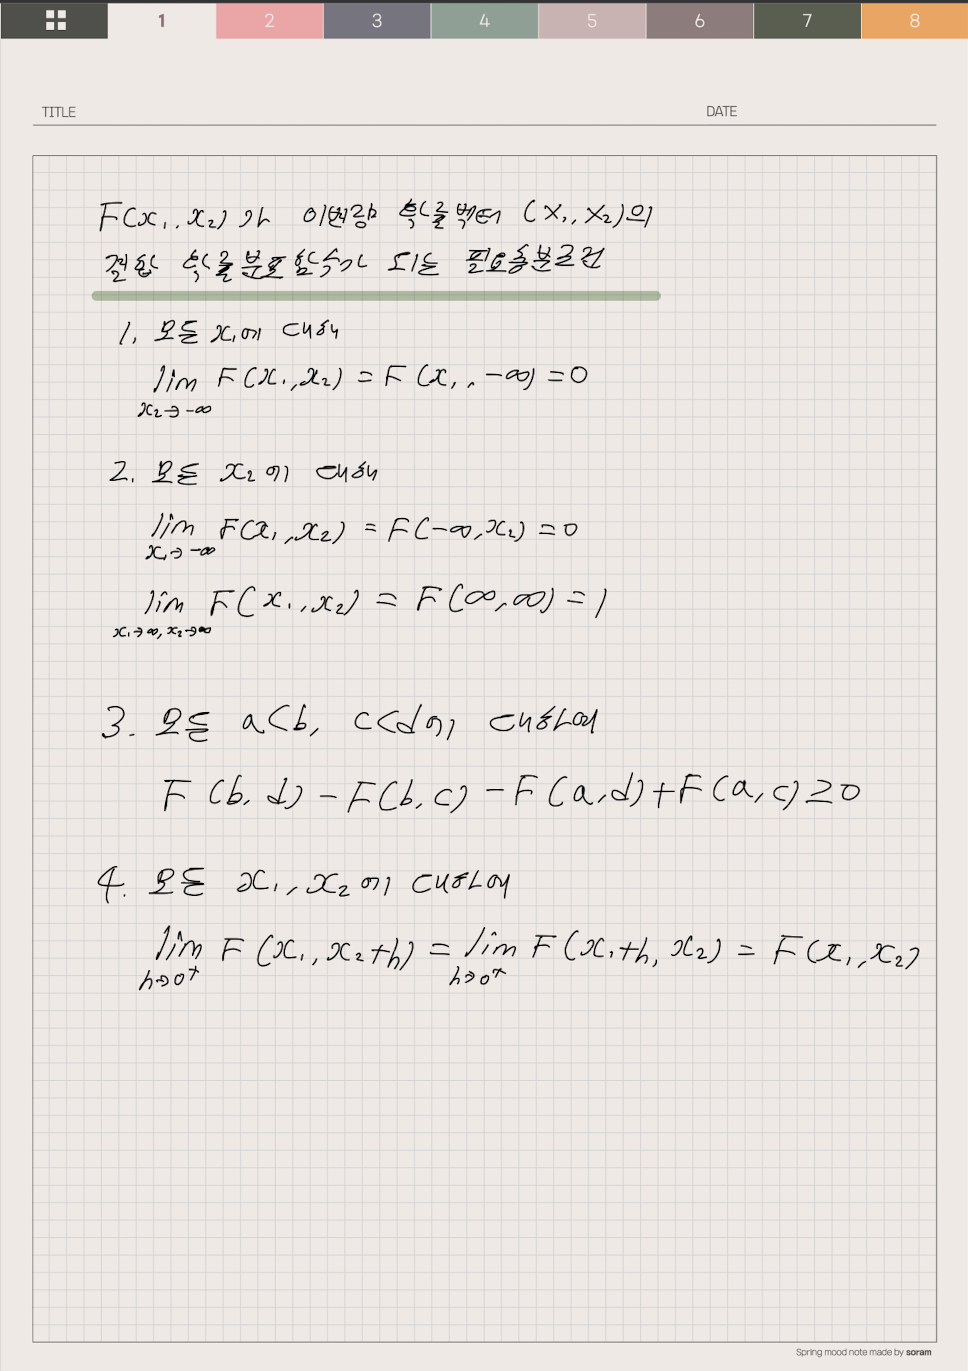 1 2 3 4 5 6 7 8
TITLE DATE
F(x₁, x₂)가 이변량 확률벡터 (X₁, X₂)의
결합 확률분포함수가 되는 필요충분조건
1. 모든 x₁에 대해
lim F(x₁, x₂) = F(x₁, -∞) = 0
x₂→-∞
2. 모든 x₂에 대해
lim F(x₁, x₂) = F(-∞, x₂) = 0
x₁→-∞
lim F(x₁, x₂) = F(∞, ∞) = 1
x₁→∞, x₂→∞
3. 모든 a<b, c<d에 대하여
F(b, d) - F(b, c) - F(a, d) + F(a, c) ≥ 0
4. 모든 x₁, x₂에 대하여
lim F(x₁, x₂+h) = lim F(x₁+h, x₂) = F(x₁, x₂)
h→0⁺ h→0⁺
Spring mood note made by soram